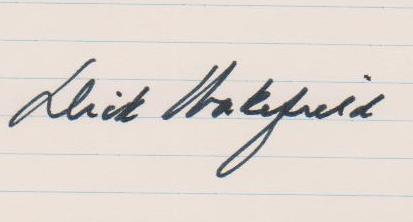 Dick Wakefield